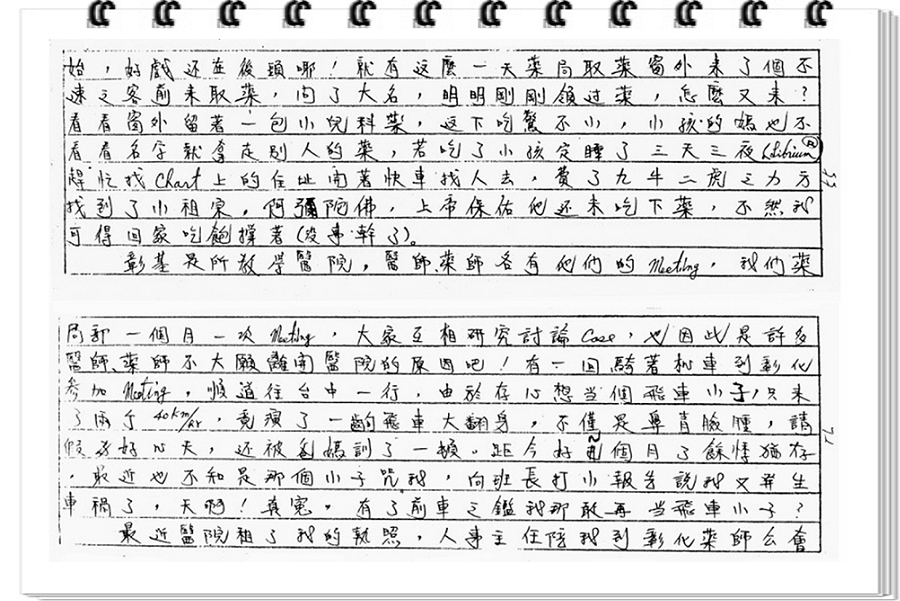 始，好戲还在後頭哪！就有这麼一天藥局取藥窗外来了個不
速之客前来取藥，问了大名，明明剛剛領过藥，怎麼又来？
看看窗外留著一包小兒科藥，这下吃驚不小，小孩的媽也不
看看名字就拿走别人的藥，若吃了小孩定睡了三天三夜(Librium®)
趕忙找Chart上的住址開著快車找人去，費了九牛二虎之力方
找到了小祖宗，阿彌陀佛，上帝保佑他还未吃下藥，不然我
可得回家吃飽撑著(没事幹了)。
彰基是所教學醫院，醫師、藥師各有他們的Meeting，我們藥
局部一個月一次Meeting，大家互相研究討論Case，也因此是許多
醫師、藥師不大願離開醫院的原因吧！有一回騎著机車到彰化
参加Meeting，順道往台中一行，由於存心想当個飛車小子，只来
了兩千40km/hr，竟演了一齣飛車大翻身，不僅是鼻青臉腫，請
假多好心天，还被爸媽訓了一頓。距今好 個月了餘悸猶存
，最近也不知是那個小子咒我，向班長打小報告說我又発生
車禍了，天啊！真冤，有了前車之鑑我那敢再当飛車小子？
最近醫院租了我的執照，人事主任陪我到彰化藥師公會